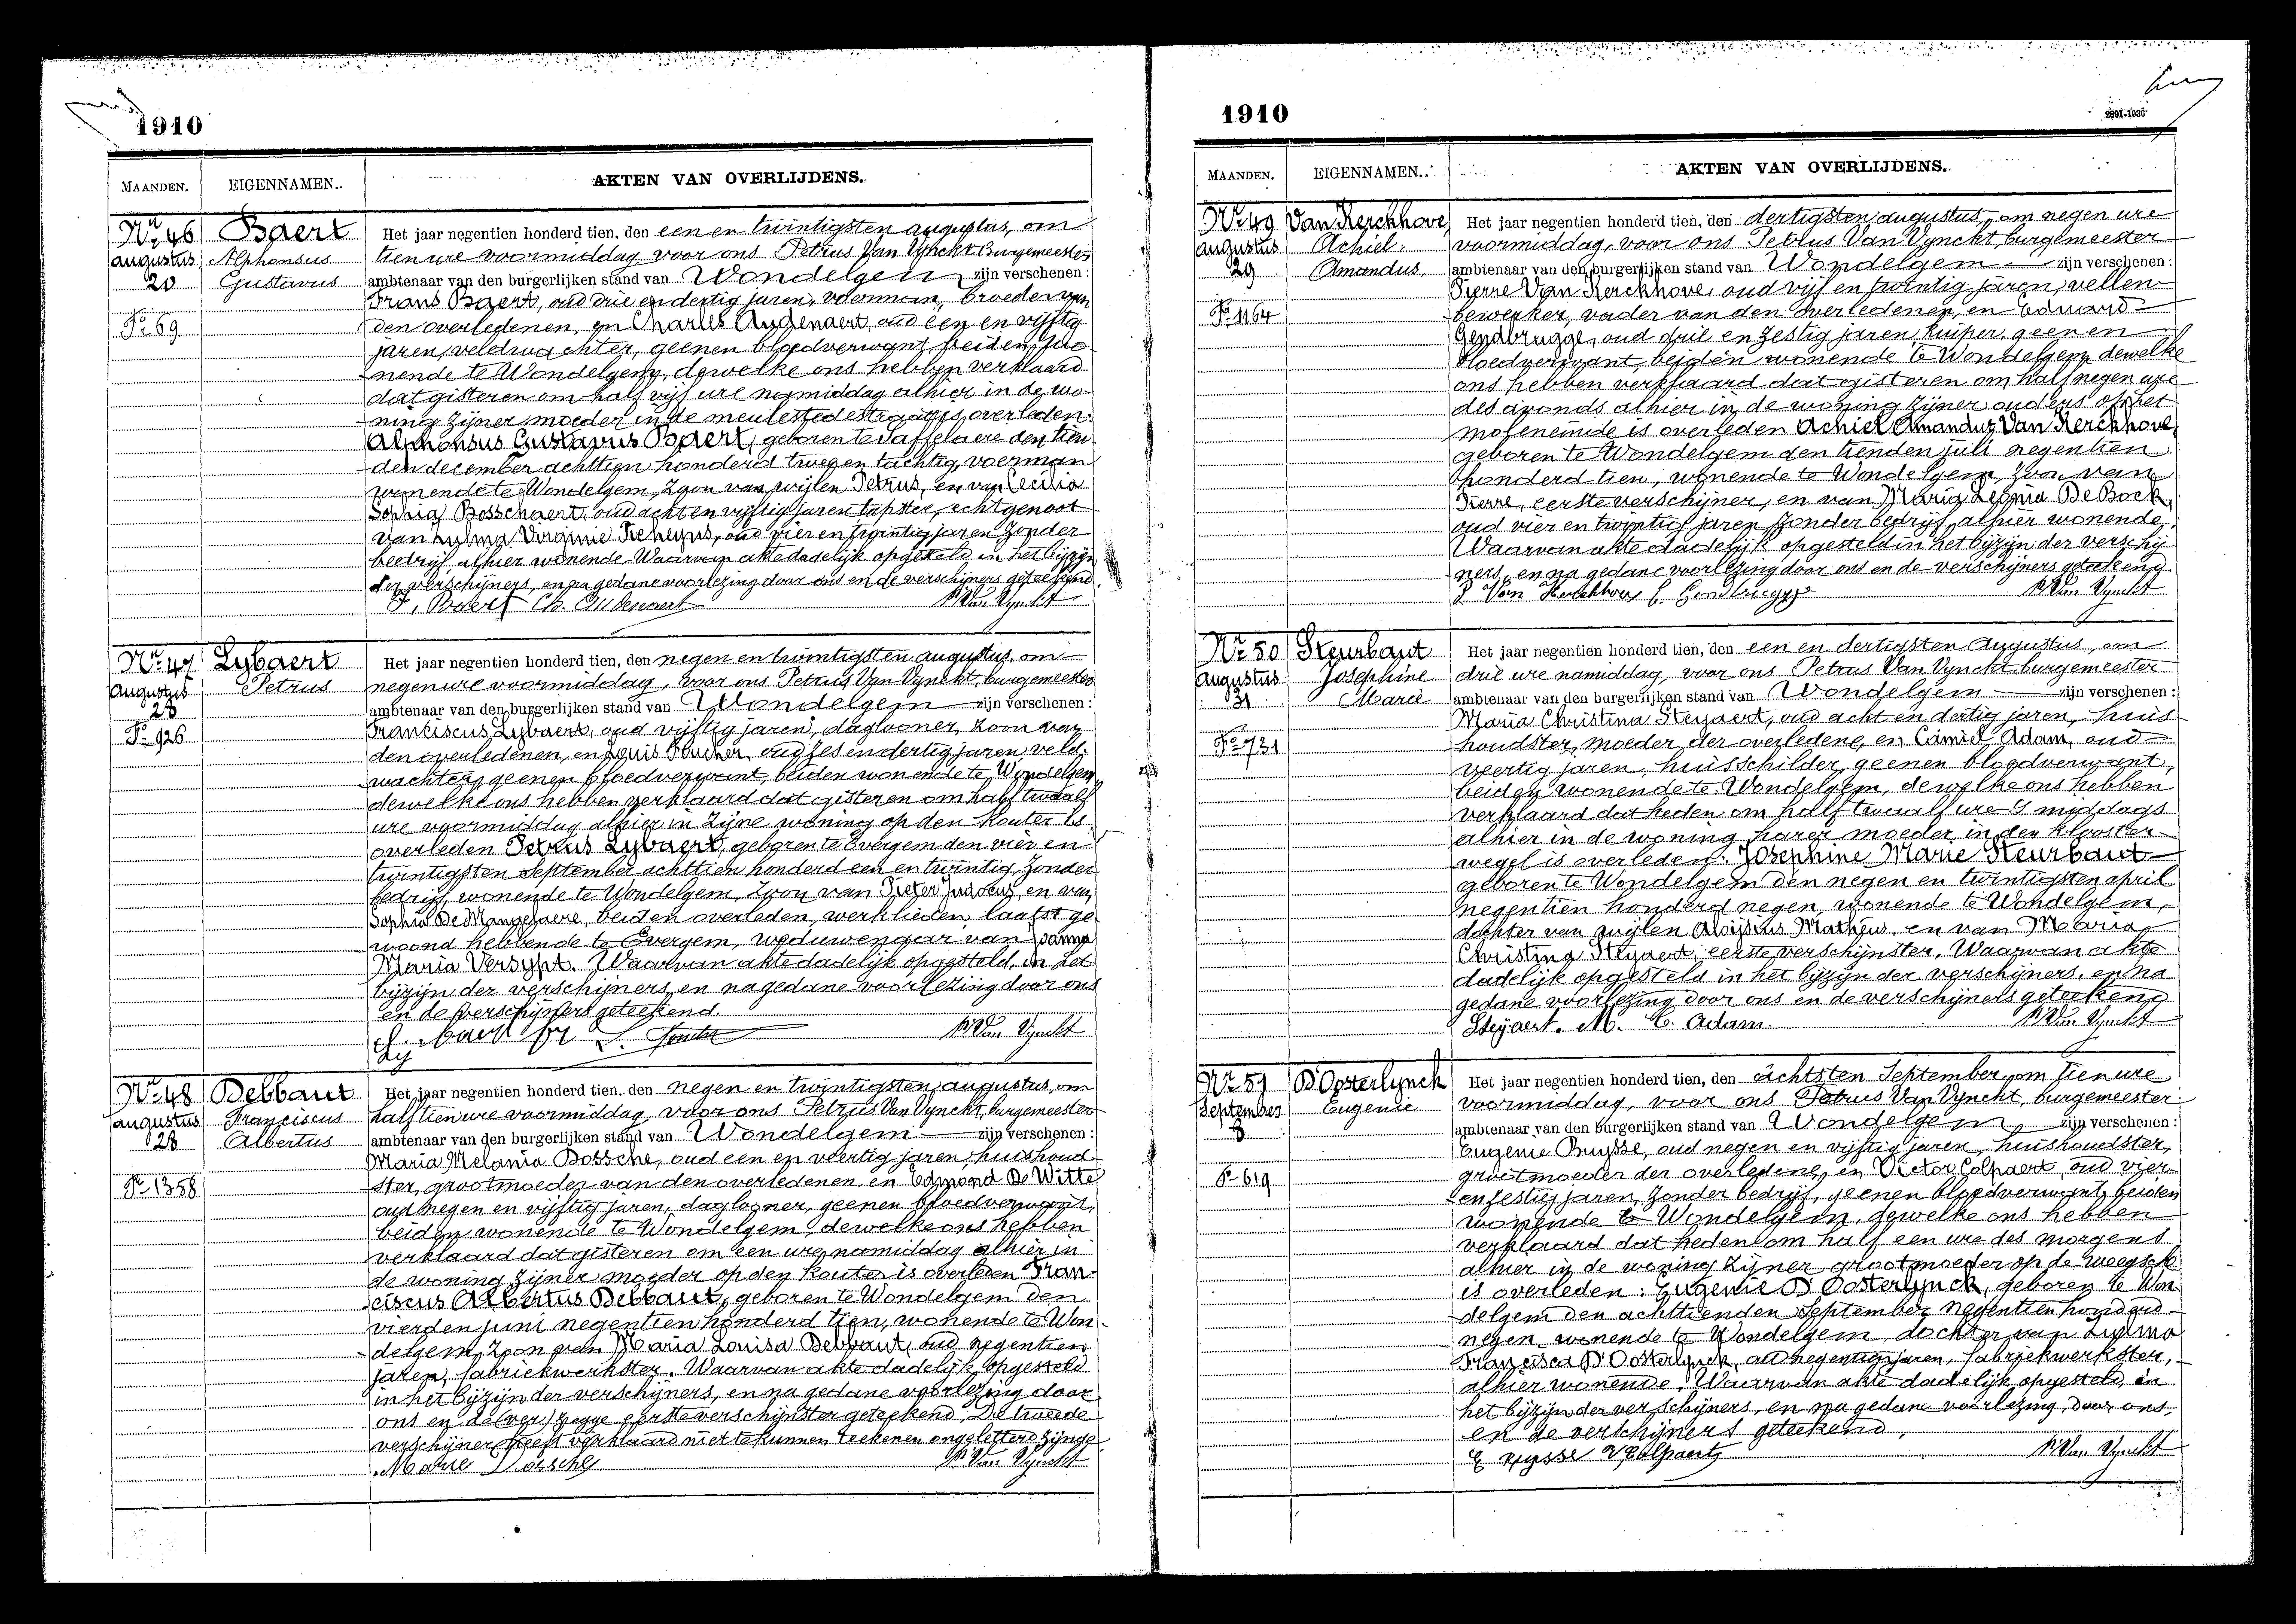 1910
MAANDEN. EIGENNAMEN. AKTEN VAN OVERLIJDENS.
Nr. 46 Baert
augustus Alphonsus
20 Gustavus
Fo 69
Het jaar negentien honderd tien, den een en twintigsten augustus, om
tien ure voormiddag voor ons Petrus Van Vynckt Burgemeester
ambtenaar van den burgerlijken stand van Wondelgem zijn verschenen:
Frans Baert, oud drie en dertig jaren, voerman, broeder van
den overledenen, en Charles Audenaert, oud een en vijftig
jaren, veldwachter, geenen bloedverwant, beiden wo-
nende te Wondelgem, dewelke ons hebben verklaard
dat gisteren om half vijf ure namiddag alhier in de wo-
ning zijner moeder in de meulestedestraat is overleden:
Alphonsus Gustavus Baert, geboren te Saffelaere den tien
den december achttien honderd twee en tachtig, voerman
wonende te Wondelgem, zoon van wijlen Petrus, en van Cecilia
Sophia Bosschaert, oud acht en vijftig jaren tapster, echtgenoot
van Zulma Virginie, oud vier en twintig jaren zonder
bedrijf, alhier wonende. Waarvan akte dadelijk opgesteld in het bijzijn
der verschijners, en na gedane voorlezing door ons en de verschijners geteekend.
F. Baert Ch. Audenaert P. Van Vynckt
Nr. 47 Lybaert
Augustus Petrus
28
Fo 926
Het jaar negentien honderd tien, den negen en twintigsten augustus, om
negen ure voormiddag, voor ons Petrus Van Vynckt, burgemeester
ambtenaar van den burgerlijken stand van Wondelgem zijn verschenen:
Franciscus Lybaert, oud vijftig jaren, daglooner, zoon van
den overledenen, en Louis Foucher, oud zes en dertig jaren, veld-
wachter, geenen bloedverwant, beiden wonende te Wondelgem
dewelke ons hebben verklaard dat gisteren om half twaalf
ure voormiddag alhier in zijne woning op den Kouter is
overleden Petrus Lybaert, geboren te Evergem den vier en
twintigsten September achttien honderd een en twintig, zonder
bedrijf, wonende te Wondelgem, zoon van Pieter Judocus, en van
Sophia De Mangelaere, beiden overleden, werklieden, laatst ge
woond hebbende te Evergem, weduwenaar van Joanna
Maria Versypt. Waarvan akte dadelijk opgesteld in het
bijzijn der verschijners, en na gedane voorlezing door ons
en de verschijners geteekend.
Lybaert fr L. Foucher P. Van Vynckt
Nr. 48 Debbaut
augustus Franciscus
28 Albertus
Fo 1358
Het jaar negentien honderd tien, den negen en twintigsten augustus, om
half tien ure voormiddag, voor ons Petrus Van Vynckt, burgemeester
ambtenaar van den burgerlijken stand van Wondelgem zijn verschenen:
Maria Melania Bossche, oud een en veertig jaren, huishoud-
ster, grootmoeder van den overledenen, en Edmond De Witte
oud negen en vijftig jaren, daglooner, geenen bloedverwant,
beiden wonende te Wondelgem, dewelke ons hebben
verklaard dat gisteren om een ure namiddag alhier in
de woning zijner moeder op den Kouter is overleden Fran-
ciscus Albertus Debbaut, geboren te Wondelgem den
vierden juni negentien honderd tien, wonende te Won-
delgem, zoon van Maria Louisa Debbaut, oud negentien
jaren, fabriekwerkster. Waarvan akte dadelijk opgesteld
in het bijzijn der verschijners, en na gedane voorlezing door
ons en de (ver) zegge eerste verschijnster geteekend. De tweede
verschijner heeft verklaard niet te kunnen teekenen ongeletterd zijnde.
Marie Bossche P. Van Vynckt
1910
2891-1930
MAANDEN. EIGENNAMEN. AKTEN VAN OVERLIJDENS.
Nr. 49 Van Kerckhove,
augustus Achiel
29 Amandus,
Fo 1164
Het jaar negentien honderd tien, den dertigsten augustus, om negen ure
voormiddag, voor ons Petrus Van Vynckt burgemeester
ambtenaar van den burgerlijken stand van Wondelgem zijn verschenen:
Pierre Van Kerckhove, oud vijf en twintig jaren, vellen-
bewerker, vader van den overledenen, en Eduard
Gendbrugge, oud drie en zestig jaren, kuiper, geenen
bloedverwant, beiden wonende te Wondelgem, dewelke
ons hebben verklaard dat gisteren om half negen ure
des avonds alhier in de woning zijner ouders op het
moleneinde is overleden Achiel Amandus Van Kerckhove,
geboren te Wondelgem den tienden juli negentien
honderd tien, wonende te Wondelgem, zoon van
Pierre, eerste verschijner, en van Maria Leonia De Bock,
oud vier en twintig jaren zonder bedrijf, alhier wonende,
Waarvan akte dadelijk opgesteld in het bijzijn der verschij
ners, en na gedane voorlezing door ons en de verschijners geteekend.
P Van Kerckhove E. Gendbrugge P. Van Vynckt
Nr. 50 Steurbaut
augustus Josephine
31 Marie
Fo 731
Het jaar negentien honderd tien, den een en dertigsten Augustus, om
drie ure namiddag, voor ons Petrus Van Vynckt burgemeester
ambtenaar van den burgerlijken stand van Wondelgem zijn verschenen:
Maria Christina Steyaert, oud acht en dertig jaren, huis
houdster, moeder der overledene, en Camiel Adam, oud
veertig jaren, huisschilder, geenen bloedverwant,
beiden wonende te Wondelgem, dewelke ons hebben
verklaard dat heden om half twaalf ure 's middags
alhier in de woning harer moeder in den klooster-
wegel is overleden: Josephine Marie Steurbaut
geboren te Wondelgem den negen en twintigsten april
negentien honderd negen, wonende te Wondelgem,
dochter van wijlen Aloijsius Matheus, en van Maria
Christina Steyaert, eerste verschijnster. Waarvan akte
dadelijk opgesteld in het bijzijn der verschijners, en na
gedane voorlezing door ons en de verschijners geteekend
Steyaert. M. C. Adam. P. Van Vynckt
Nr. 51 D'Oosterlynck
September Eugenie
8
Fo 619
Het jaar negentien honderd tien, den achtsten September, om tien ure
voormiddag, voor ons Petrus Van Vynckt, burgemeester
ambtenaar van den burgerlijken stand van Wondelgem zijn verschenen:
Eugenie Buysse, oud negen en vijftig jaren, huishoudster,
grootmoeder der overledene, en Victor Colpaert, oud vier
en zestig jaren, zonder bedrijf, geenen bloedverwant, beiden
wonende te Wondelgem, dewelke ons hebben
verklaard dat heden om half een ure des morgens
alhier in de woning zijner grootmoeder op de
is overleden: Eugenie D'Oosterlynck, geboren te Won-
delgem den achttienden September negentien honderd
negen, wonende te Wondelgem, dochter van Zulma
Francisca D'Oosterlynck, oud negentien jaren, fabriekwerkster,
alhier wonende. Waarvan akte dadelijk opgesteld in
het bijzijn der verschijners, en na gedane voorlezing, door ons,
en de verschijners geteekend,
E Buysse V Colpaert P. Van Vynckt